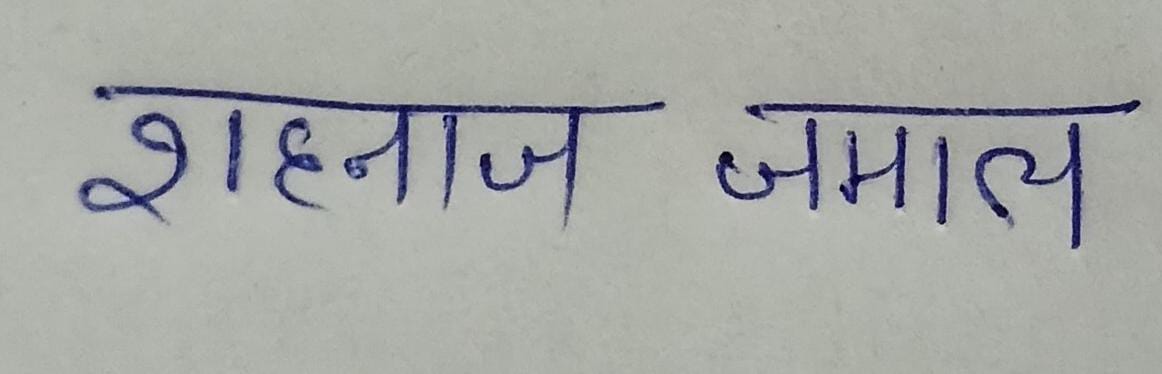 शहनाज जमाल